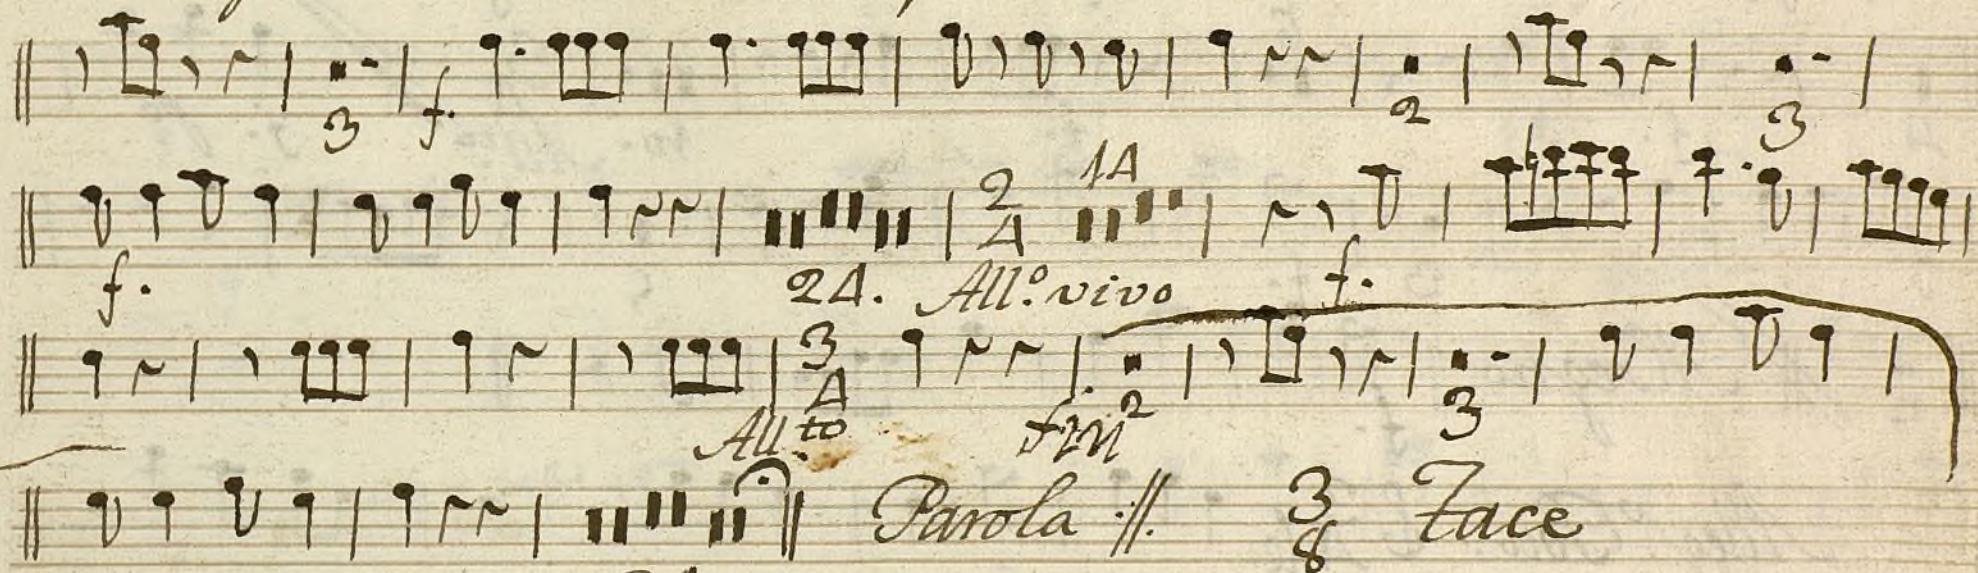 3 f. 2 3
2/4 14
f. 24. All.º vivo f.
3/4
All.to fin 2 3
Parola :||. 3/8 Tace